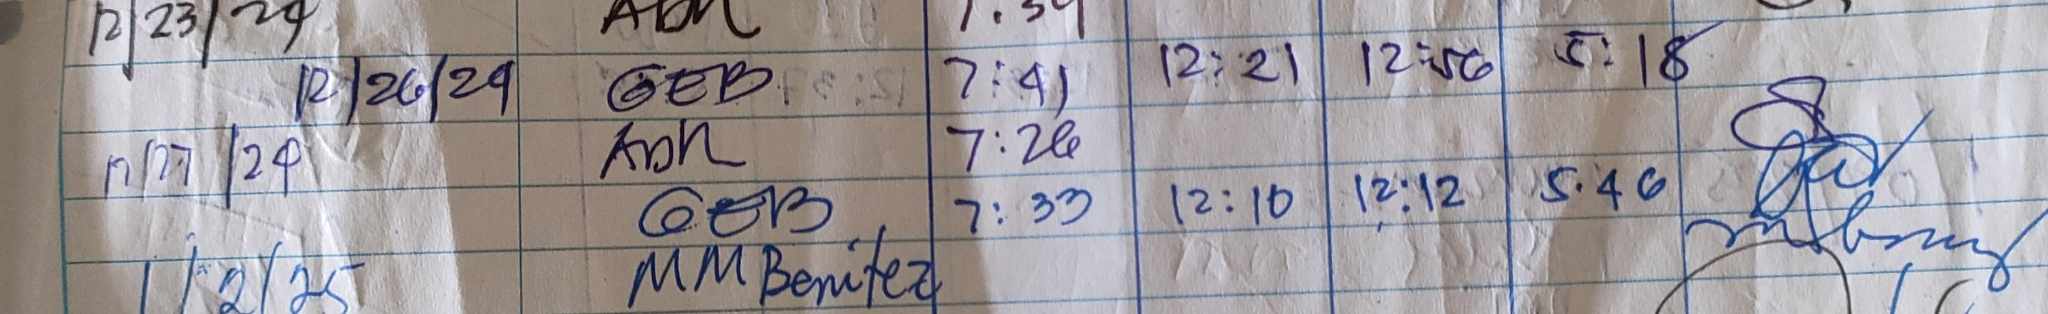 12/23/24 ADR 7:34
12/26/24 GEB 7:41 12:21 12:56 5:18
12/27/24 ADR 7:26
GEB 7:33 12:10 12:12 5:46
1/2/25 MMBenitez